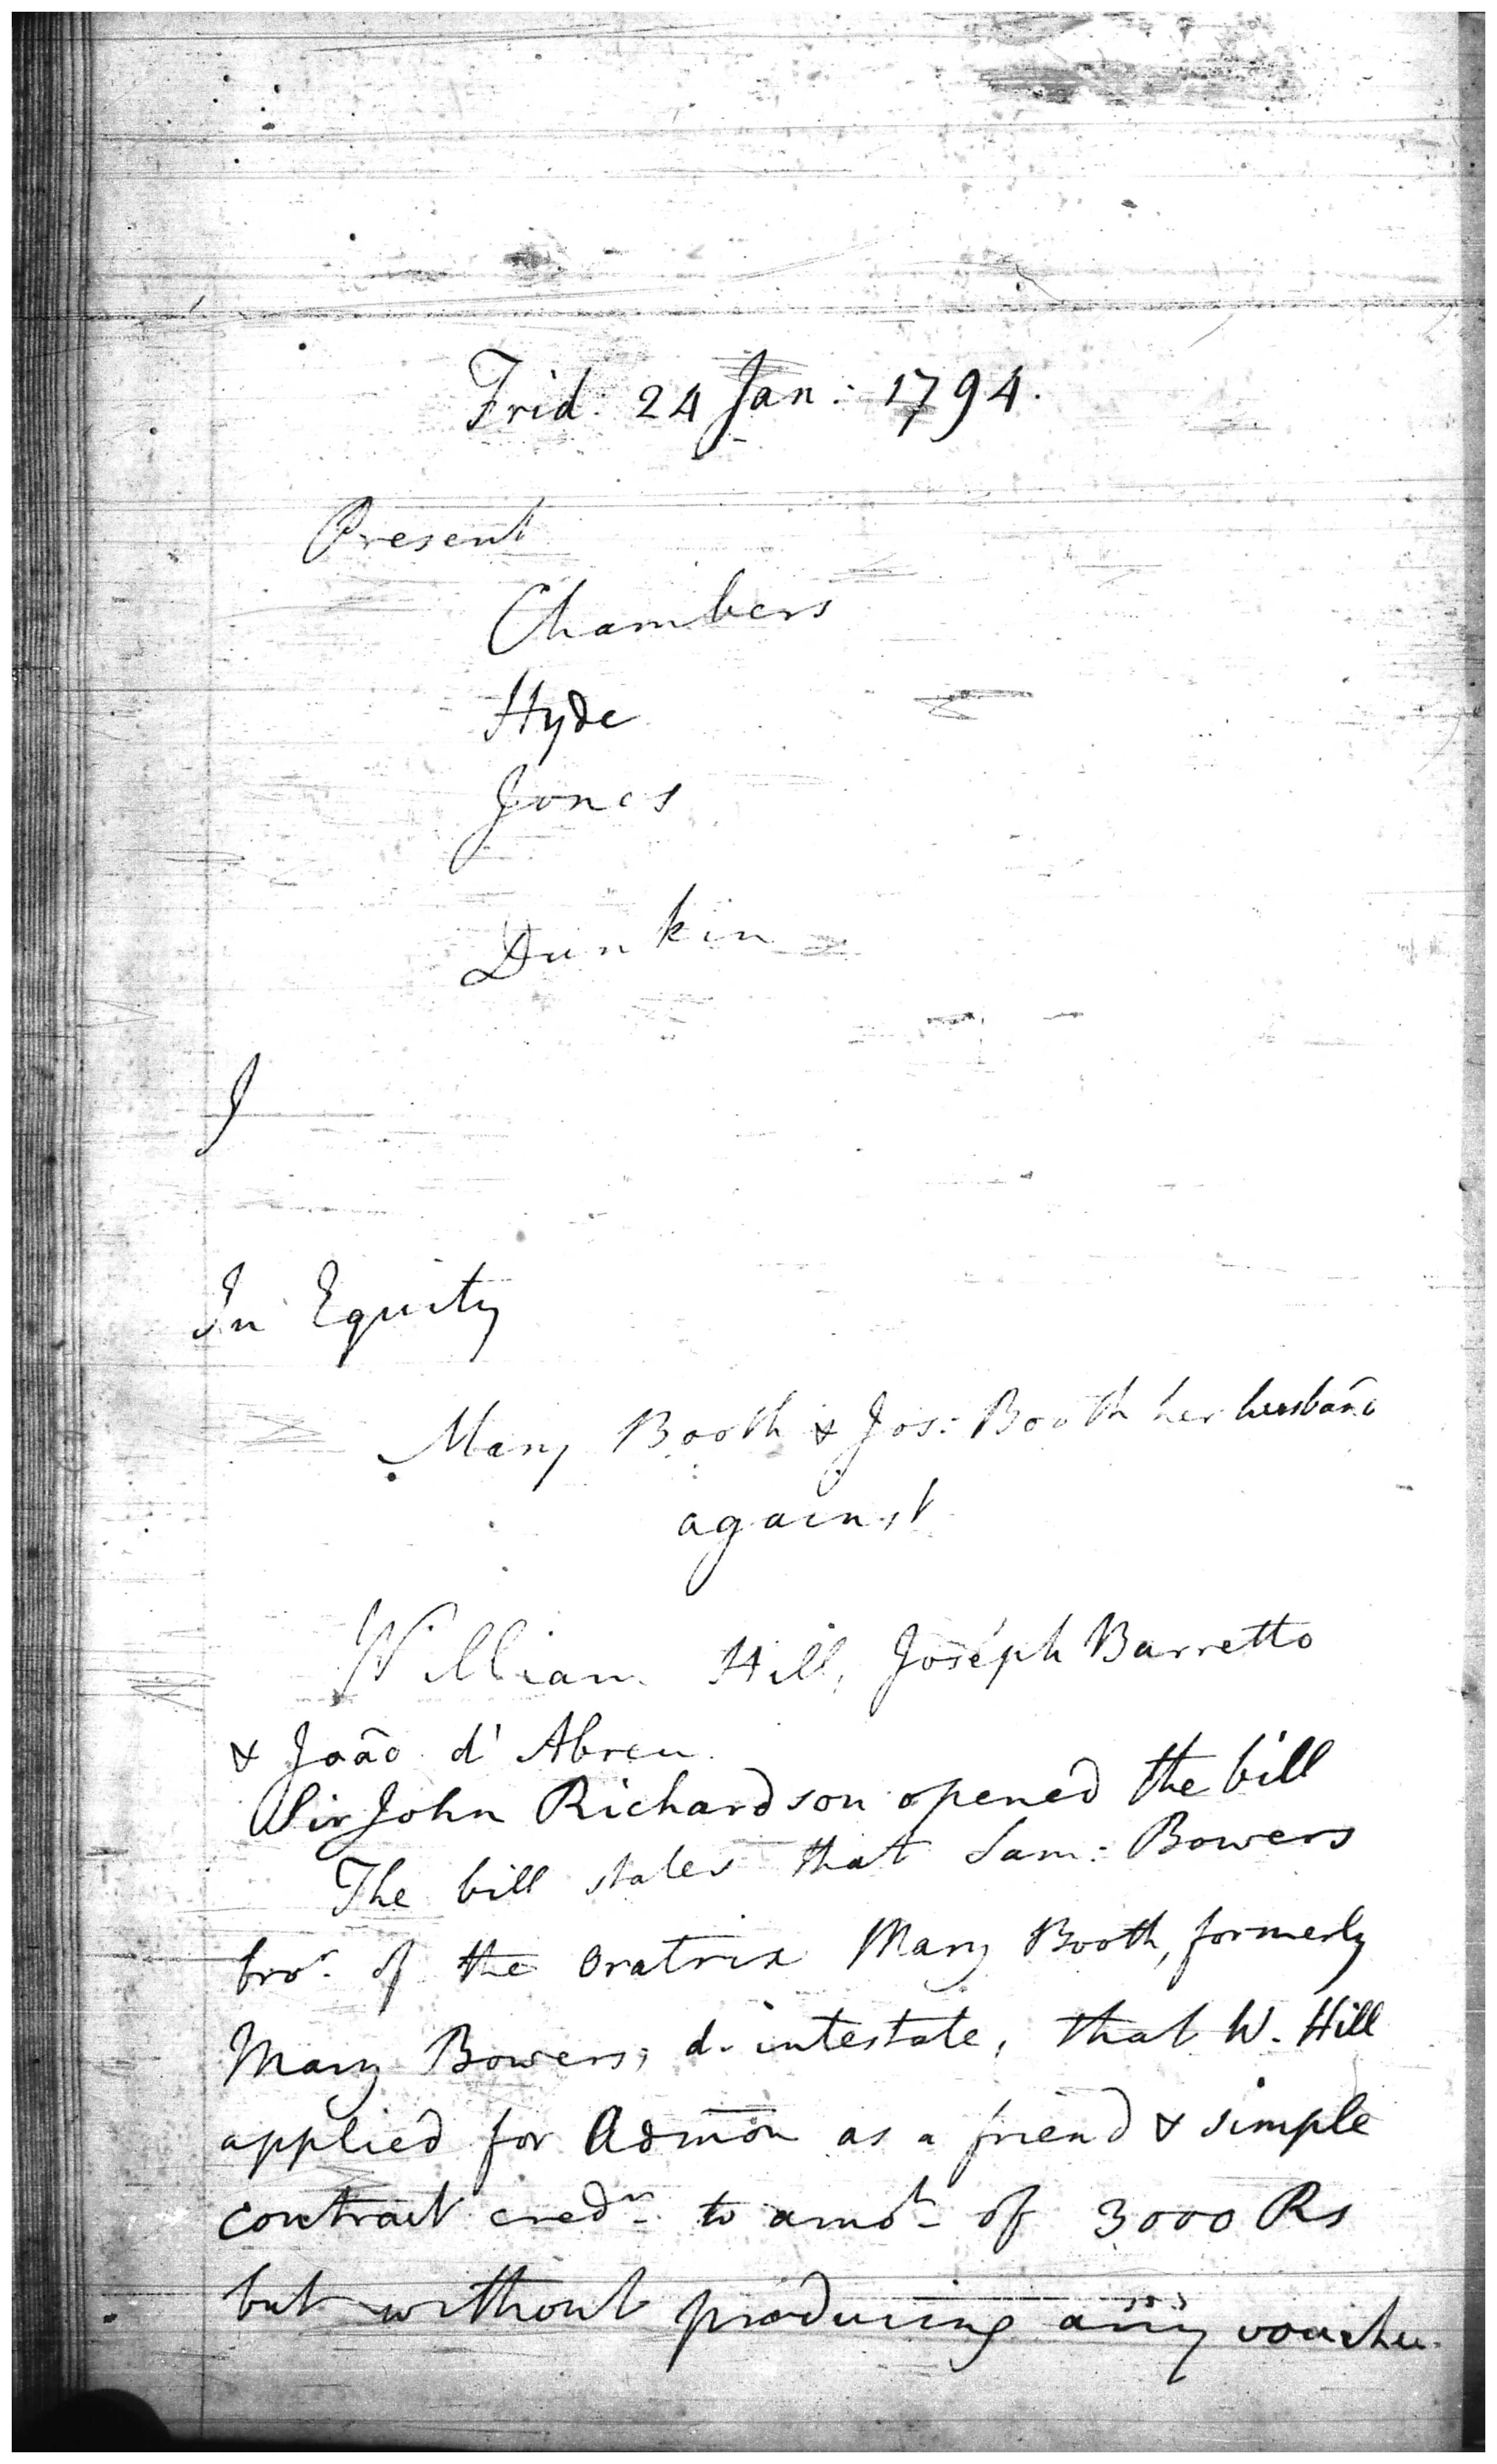 Frid: 24 Jan: 1794.
Present
Chambers
Hyde
Jones
Dunkin
J
In Equity
Mary Booth & Jos: Booth her husband
against
William Hill, Joseph Barretto
& João d' Abreu.
Sir John Richardson opened the bill
The bill states that Sam: Bowers
bror. of the Oratrix Mary Booth, formerly
Mary Bowers, d. intestate, that W. Hill
applied for Admōn as a friend & simple
contract credr. to amot. of 3000 Rs
but without producing any voucher.